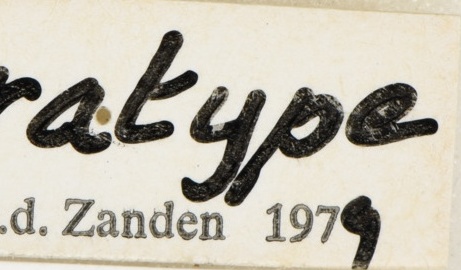 ratype
.d. Zanden 1979